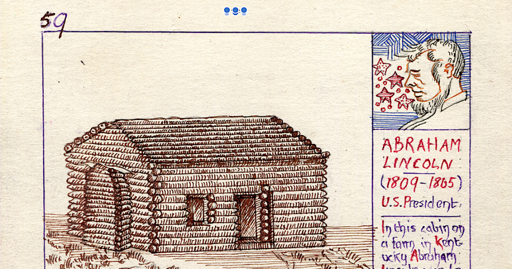 59
ABRAHAM
LINCOLN
(1809-1865)
U.S. President.
In this cabin on
a farm in Kent-
ucky Abraham